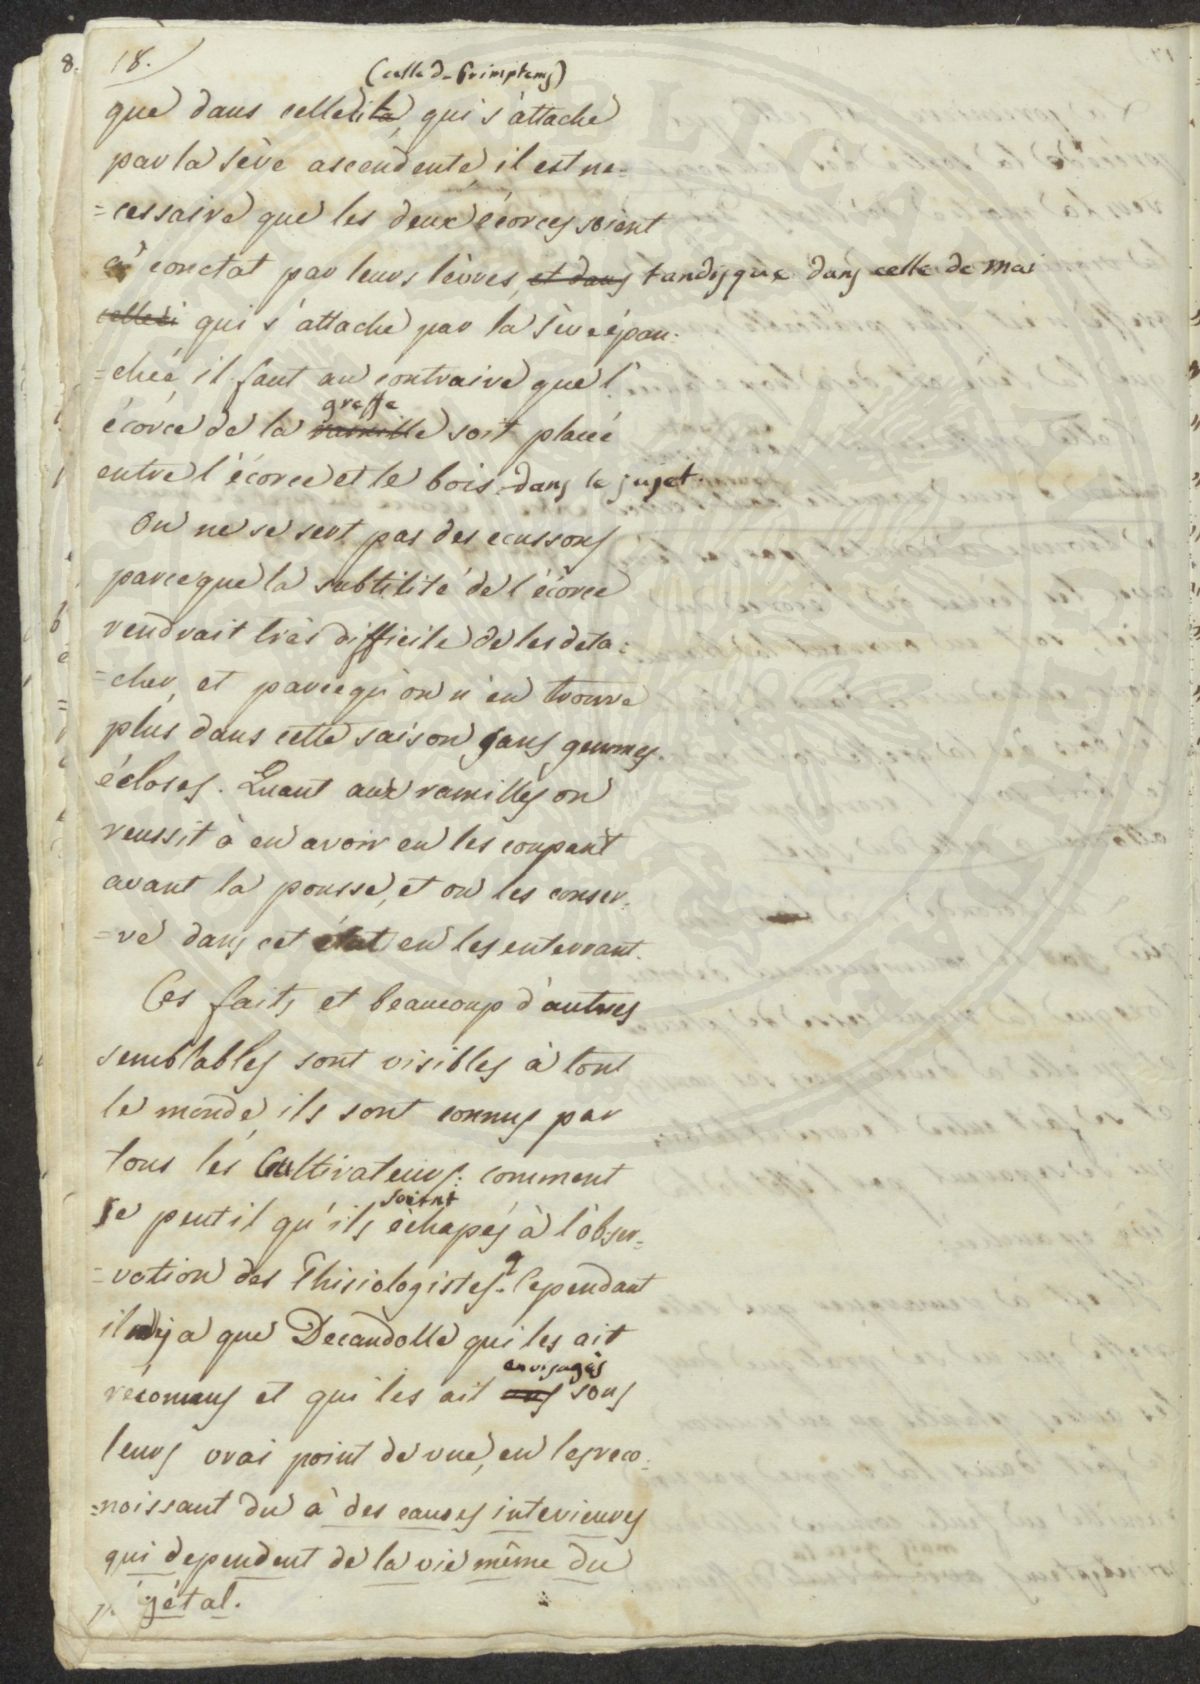 18.
(celle de Primptems)
que dans celle là qui s'attache
par la sève ascendente il est ne=
=cessaire que les deux écorces soient
à conctat par leurs lèvres, et dans tandisque dans celle de mai
celleci qui s'attache par la sève épan=
=chée il faut au contraire que l'
greffe
écorce de la ramille soit placée
entre l'écorce et le bois dans le sujet.
On ne se sert pas des ecussons
parceque la subtilité de l'écorce
rendrait très difficile de les déta=
=cher, et parcequ'on n'en trouve
plus dans cette saison sans gemmes
écloses. Quant aux ramilles on
reussit à en avoir en les coupant
avant la pousse, et on les conser=
=ve dans cet état en les enterrant.
Ces faits et beaucoup d'autres
semblables sont visibles à tout
le monde, ils sont connus par
tous les Cultivateurs: comment
soient
se peut il qu'ils échapés à l'obser=
=vation des Phisiologistes? Cependant
il n'y a que Decandolle qui les ait
envisagés
reconnus et qui les ait sous
leurs vrai point de vue, en les reco=
=noissant du à des causes interieures
qui dependent de la vie même du
gétal.